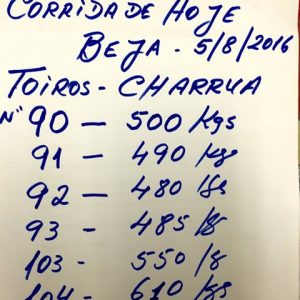 CORRIDA DE HOJE
BEJA - 5/8/2016
TOIROS - CHARRUA
Nº 90 - 500 Kgs
91 - 490 Kgs
92 - 480 Kgs
93 - 485 Kg
103 - 550 Kg
104 - 610 Kgs